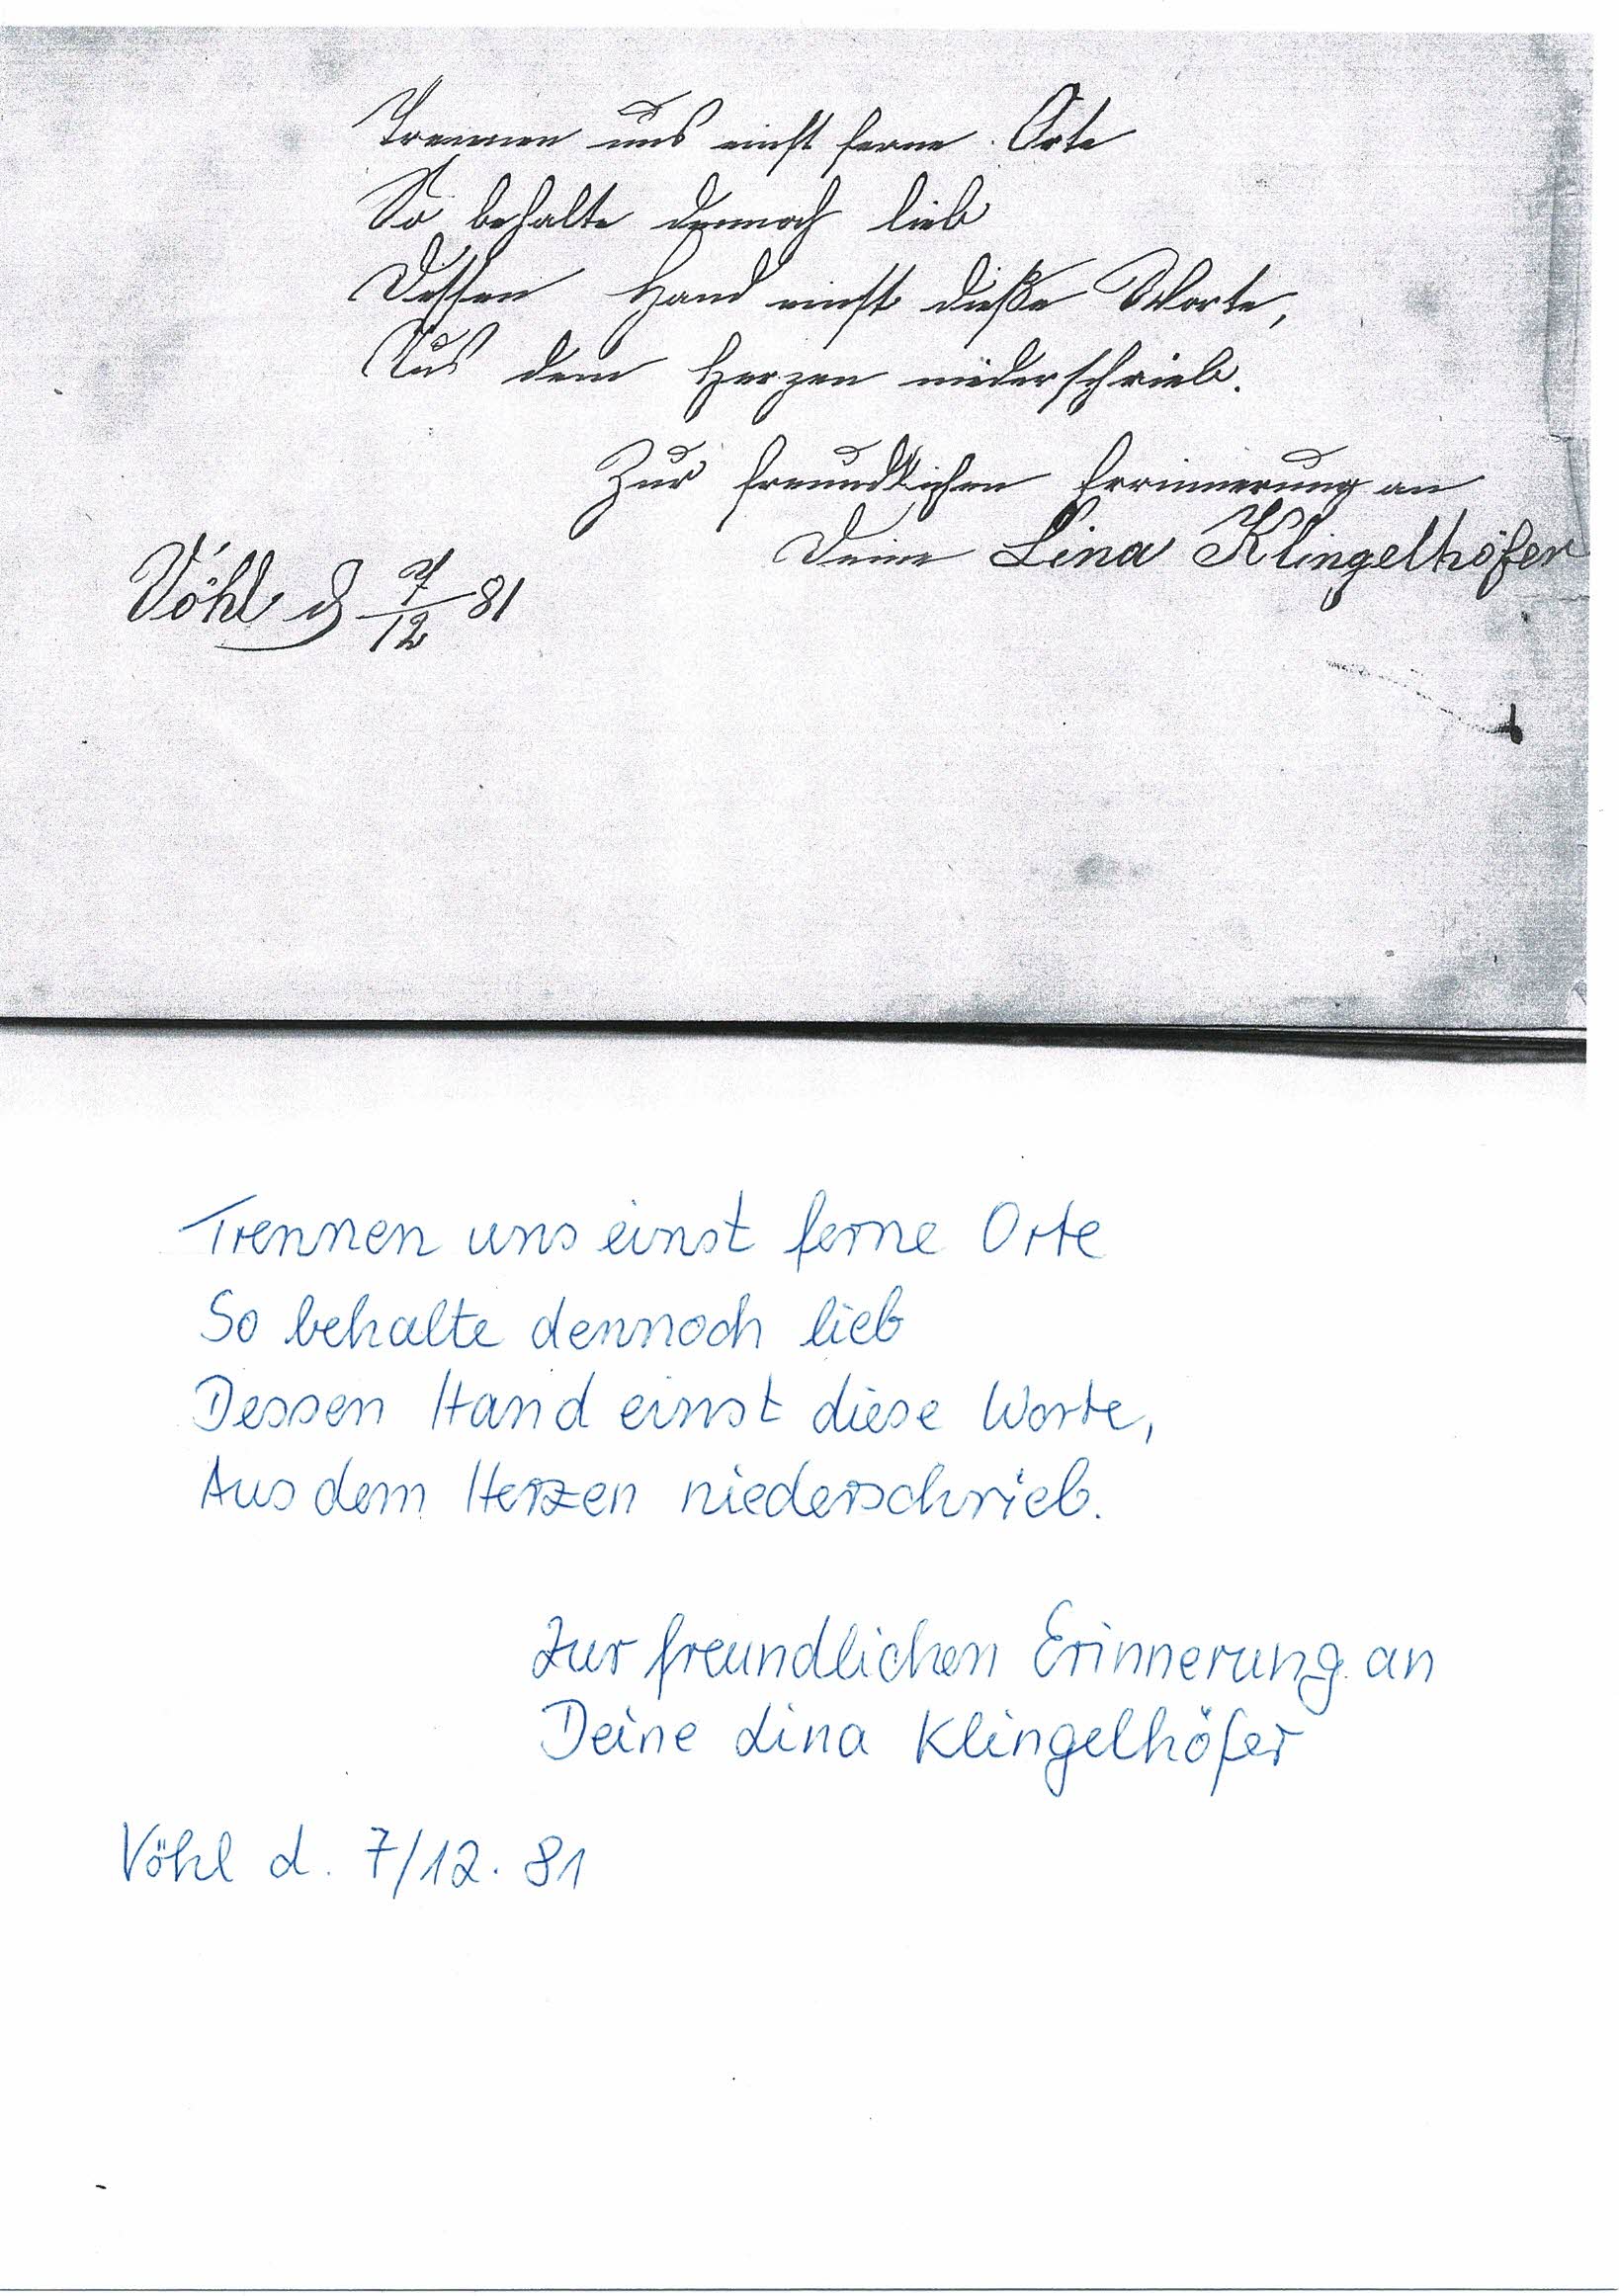 Trennen uns einst ferne Orte
So behalte dennoch lieb
Dessen Hand einst dieße Worte,
Aus dem Herzen niederschrieb.
Zur freundlichen Errinnerung an
Deine Lina Klingelhöfer
Vöhl d 7/12 81
Trennen uns einst ferne Orte
So behalte dennoch lieb
Dessen Hand einst diese Worte,
Aus dem Herzen niederschrieb.
Zur freundlichen Erinnerung an
Deine Lina Klingelhöfer
Vöhl d. 7/12. 81